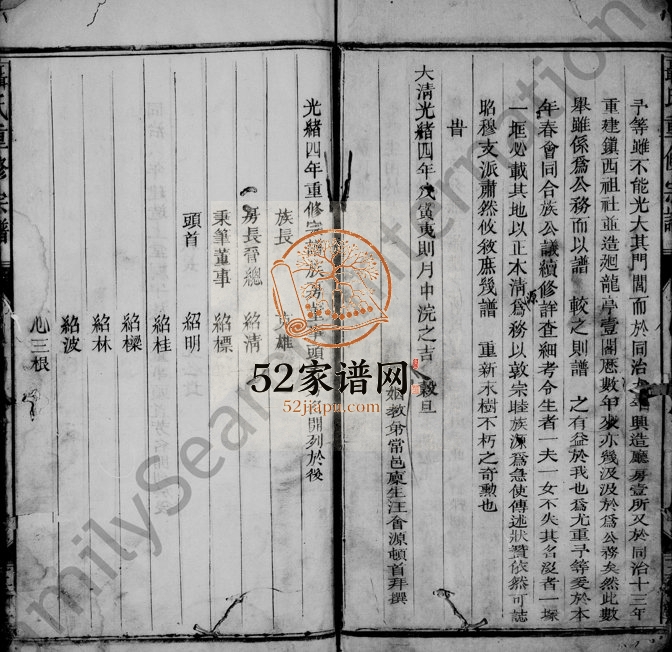 予等雖不能光大其門閭而於同治 年興造廳房壹所又於同治十三年
重建鎮西祖社並造廻龍亭壹閣歷數年來亦幾汲汲於爲公務矣然此數
舉雖係爲公務而以譜 較之則譜 之有益於我也爲尤重予等爰於本
年春會同合族公議續修詳查細考今生者一夫一女不失其名沒者一塚
一坵必載其地以正本清源爲務以敦宗睦族爲急使傳述狀贊依然可誌
昭穆支派肅然攸敘庶幾譜 重新木樹不朽之奇勲也
旹
大清光緒四年戊寅夷則月中浣之吉 穀旦
姻教弟常邑庠生汪會源頓首拜撰
光緒四年重修宗譜族房 頭 開列於後
族長 雄
房長晉總 紹清
秉筆董事 紹標
頭首 紹明
紹桂
紹樑
紹林
紹波
心三根
氏重修宗譜
52家谱网
52jiapu.com
FamilySearch International